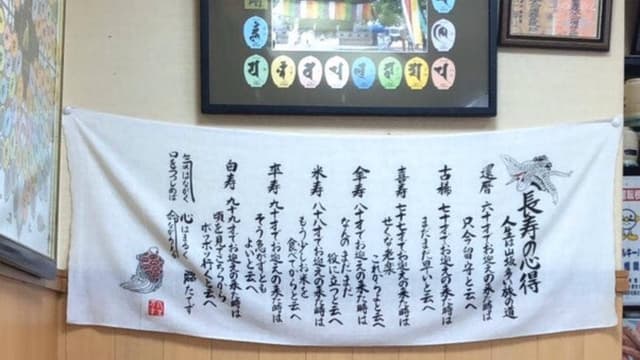 長寿の心得
人生は山坂多い旅の道
還暦 六十才でお迎えの来た時は
只今留守と云へ
古稀 七十才でお迎えの来た時は
まだまだ早いと云へ
喜寿 七十七才でお迎えの来た時は
せくな老楽
これからよと云へ
傘寿 八十才でお迎えの来た時は
なんのまだまだ
役に立つと云へ
米寿 八十八才でお迎えの来た時は
もう少しお米を
食べてからと云へ
卒寿 九十才でお迎えの来た時は
そう急がずとも
よいと云へ
白寿 九十九才でお迎えの来た時は
頃を見てこちらから
ボツボツ行くと云へ
気はながく
心はまるく
腹たてず
口をつつしめば
命ながらへる